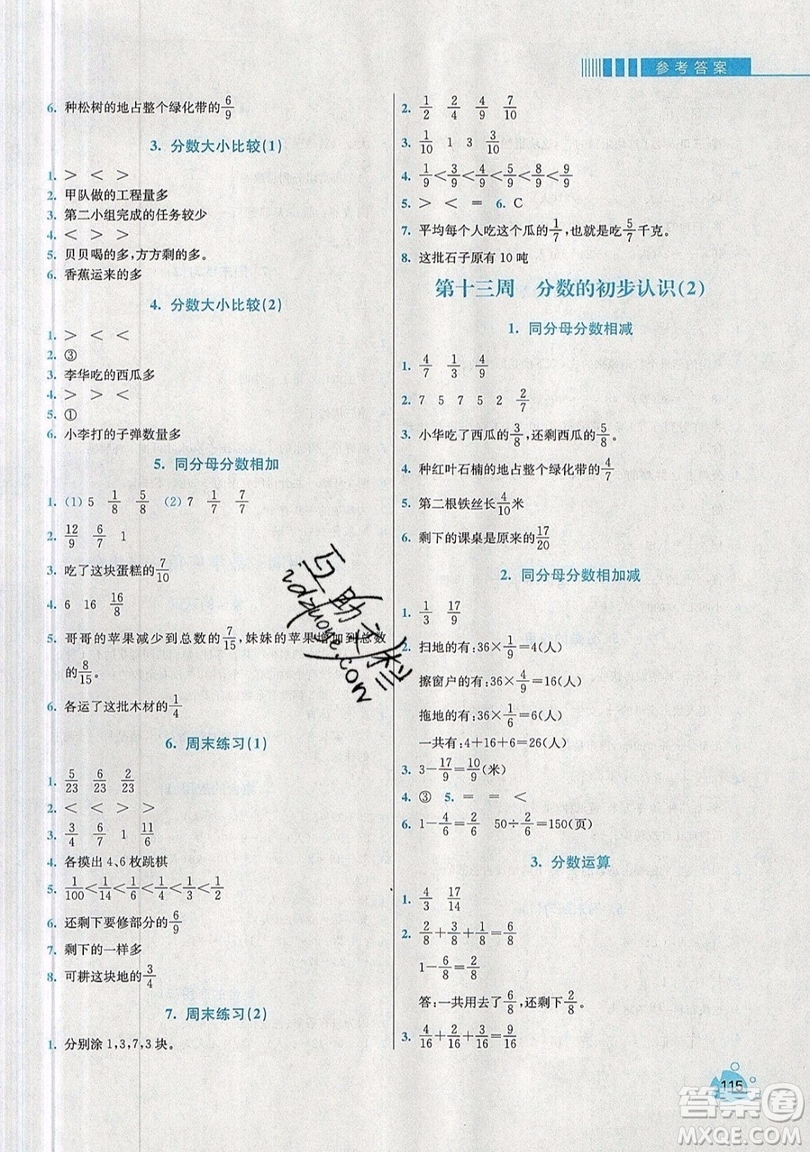 参考答案
6. 种松树的地占整个绿化带的6/9
3. 分数大小比较(1)
1. > < >
2. 甲队做的工程量多
3. 第二小组完成的任务较少
4. < > >
5. 贝贝喝的多,方方剩的多。
6. 香蕉运来的多
4. 分数大小比较(2)
1. > < <
2. ③
3. 李华吃的西瓜多
4. > > <
5. ①
6. 小李打的子弹数量多
5. 同分母分数相加
1. (1) 5 1/8 5/8 (2) 7 1/7 7/7
2. 12/9 6/7 1
3. 吃了这块蛋糕的7/10
4. 6 16 16/8
5. 哥哥的苹果减少到总数的7/15,妹妹的苹果增加到总数
的8/15。
6. 各运了这批木材的1/4
6. 周末练习(1)
1. 5/23 6/23 2/6
2. < < > >
3. 3/4 6/7 1 11/6
4. 各摸出4、6枚跳棋
5. 1/100<1/14<1/6<1/4<1/3<1/2
6. 还剩下要修部分的6/9
7. 剩下的一样多
8. 可耕这块地的3/4
7. 周末练习(2)
1. 分别涂1,3,7,3块。
2. 1/2 2/4 4/9 7/10
3. 1/10 1 3 3/10
4. 1/9<4/9<5/9<6/9<8/9
5. > < = 6. C
7. 平均每个人吃这个瓜的1/7,也就是吃5/7千克。
8. 这批石子原有10吨
第十三周 分数的初步认识(2)
1. 同分母分数相减
1. 4/7 1/3 4/9
2. 7 5 7 5 2 2/7
3. 小华吃了西瓜的3/8,还剩西瓜的5/8。
4. 种红叶石楠的地占整个绿化带的4/7
5. 第二根铁丝长4/10米
6. 剩下的课桌是原来的17/20
2. 同分母分数相加减
1. 1/3 17/9
2. 扫地的有:36×1/9=4(人)
擦窗户的有:36×4/9=16(人)
拖地的有:36×1/6=6(人)
一共有:4+16+6=26(人)
3. 3-17/9=10/9(米)
4. ③ 5. = = <
6. 1-4/6=2/6 50÷2/6=150(页)
3. 分数运算
1. 4/3 17/14
2. 2/8+3/8+1/8=6/8
1-6/8=2/8
答:一共用去了6/8,还剩下2/8。
3. 4/16+2/16+3/16=9/16
互助文栏
zdzuone.com
115
答案圈
MXQE.COM